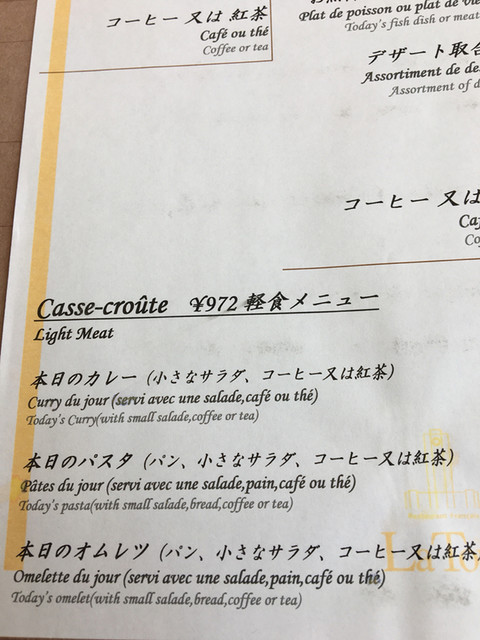 コーヒー 又は 紅茶
Café ou thé
Coffee or tea
Plat de poisson ou plat de
Today's fish dish or meat
デザート取
Assortiment de
Assortment of
コーヒー 又は
Casse-croûte ¥972 軽食メニュー
Light Meat
本日のカレー (小さなサラダ、コーヒー又は紅茶)
Curry du jour (servi avec une salade,café ou thé)
Today's Curry(with small salade,coffee or tea)
本日のパスタ (パン、小さなサラダ、コーヒー又は紅茶)
Pâtes du jour (servi avec une salade,pain,café ou thé)
Today's pasta(with small salade,bread,coffee or tea)
本日のオムレツ (パン、小さなサラダ、コーヒー又は紅茶
Omelette du jour (servi avec une salade,pain,café ou thé)
Today's omelet(with small salade,bread,coffee or tea)